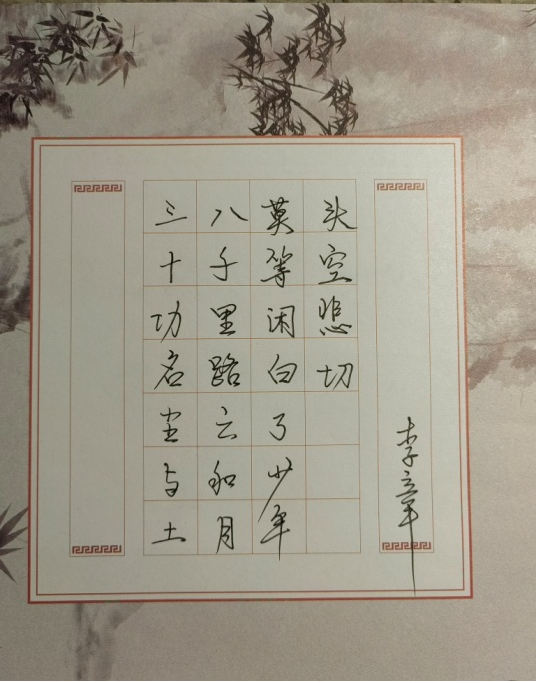 三十功名尘与土
八千里路云和月
莫等闲白了少年
头空悲切
李章